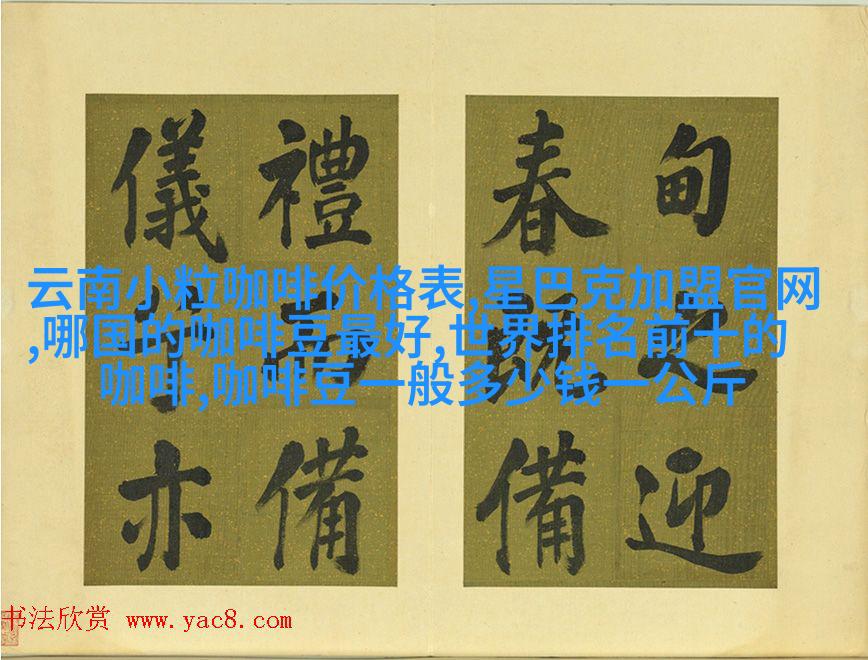 云南小粒咖啡价格表,星巴克加盟官网
,哪国的咖啡豆最好,世界排名前十的
咖啡,咖啡豆一般多少钱一公斤
甸之迎
春既備
禮備
儀亦
书法欣赏 www.yac8.com